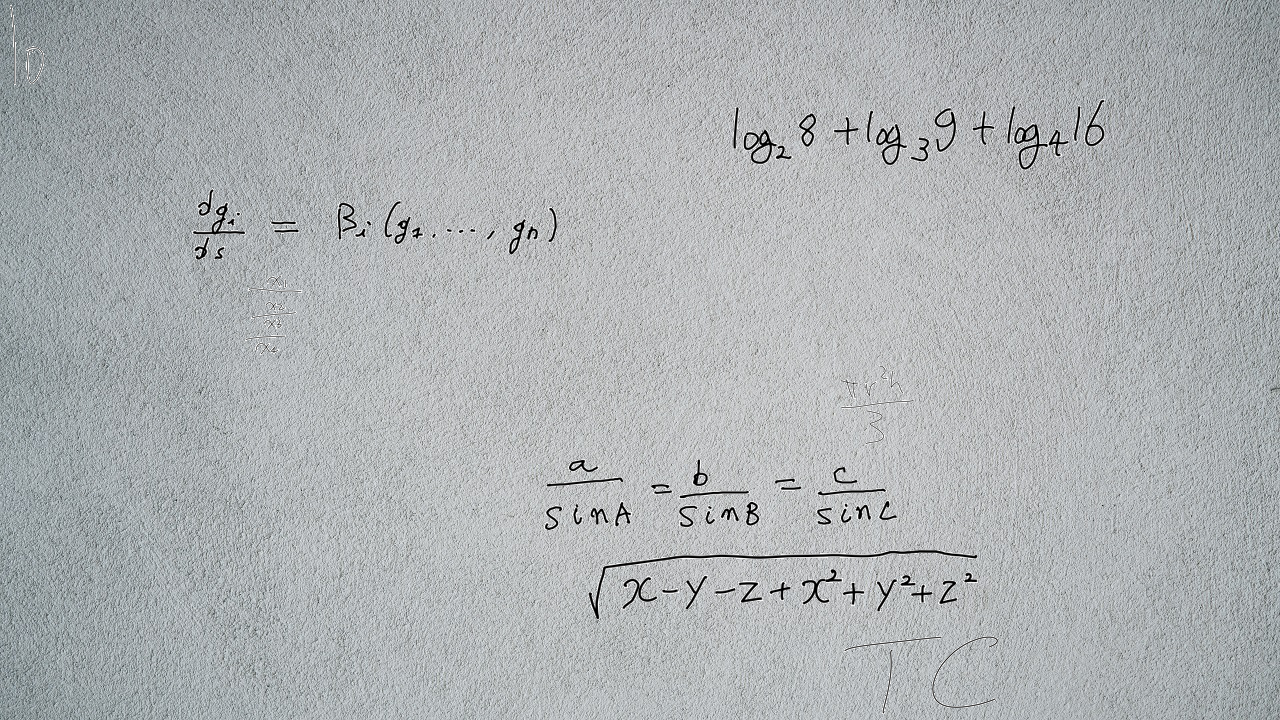 b
log₂ 8 + log₃ 9 + log₄ 16
dgᵢ/ds = βᵢ (g₁, ...., gₙ)
πr²h/3
a/sinA = b/sinB = c/sinC
√(x-y-z+x²+y²+z²)
TC